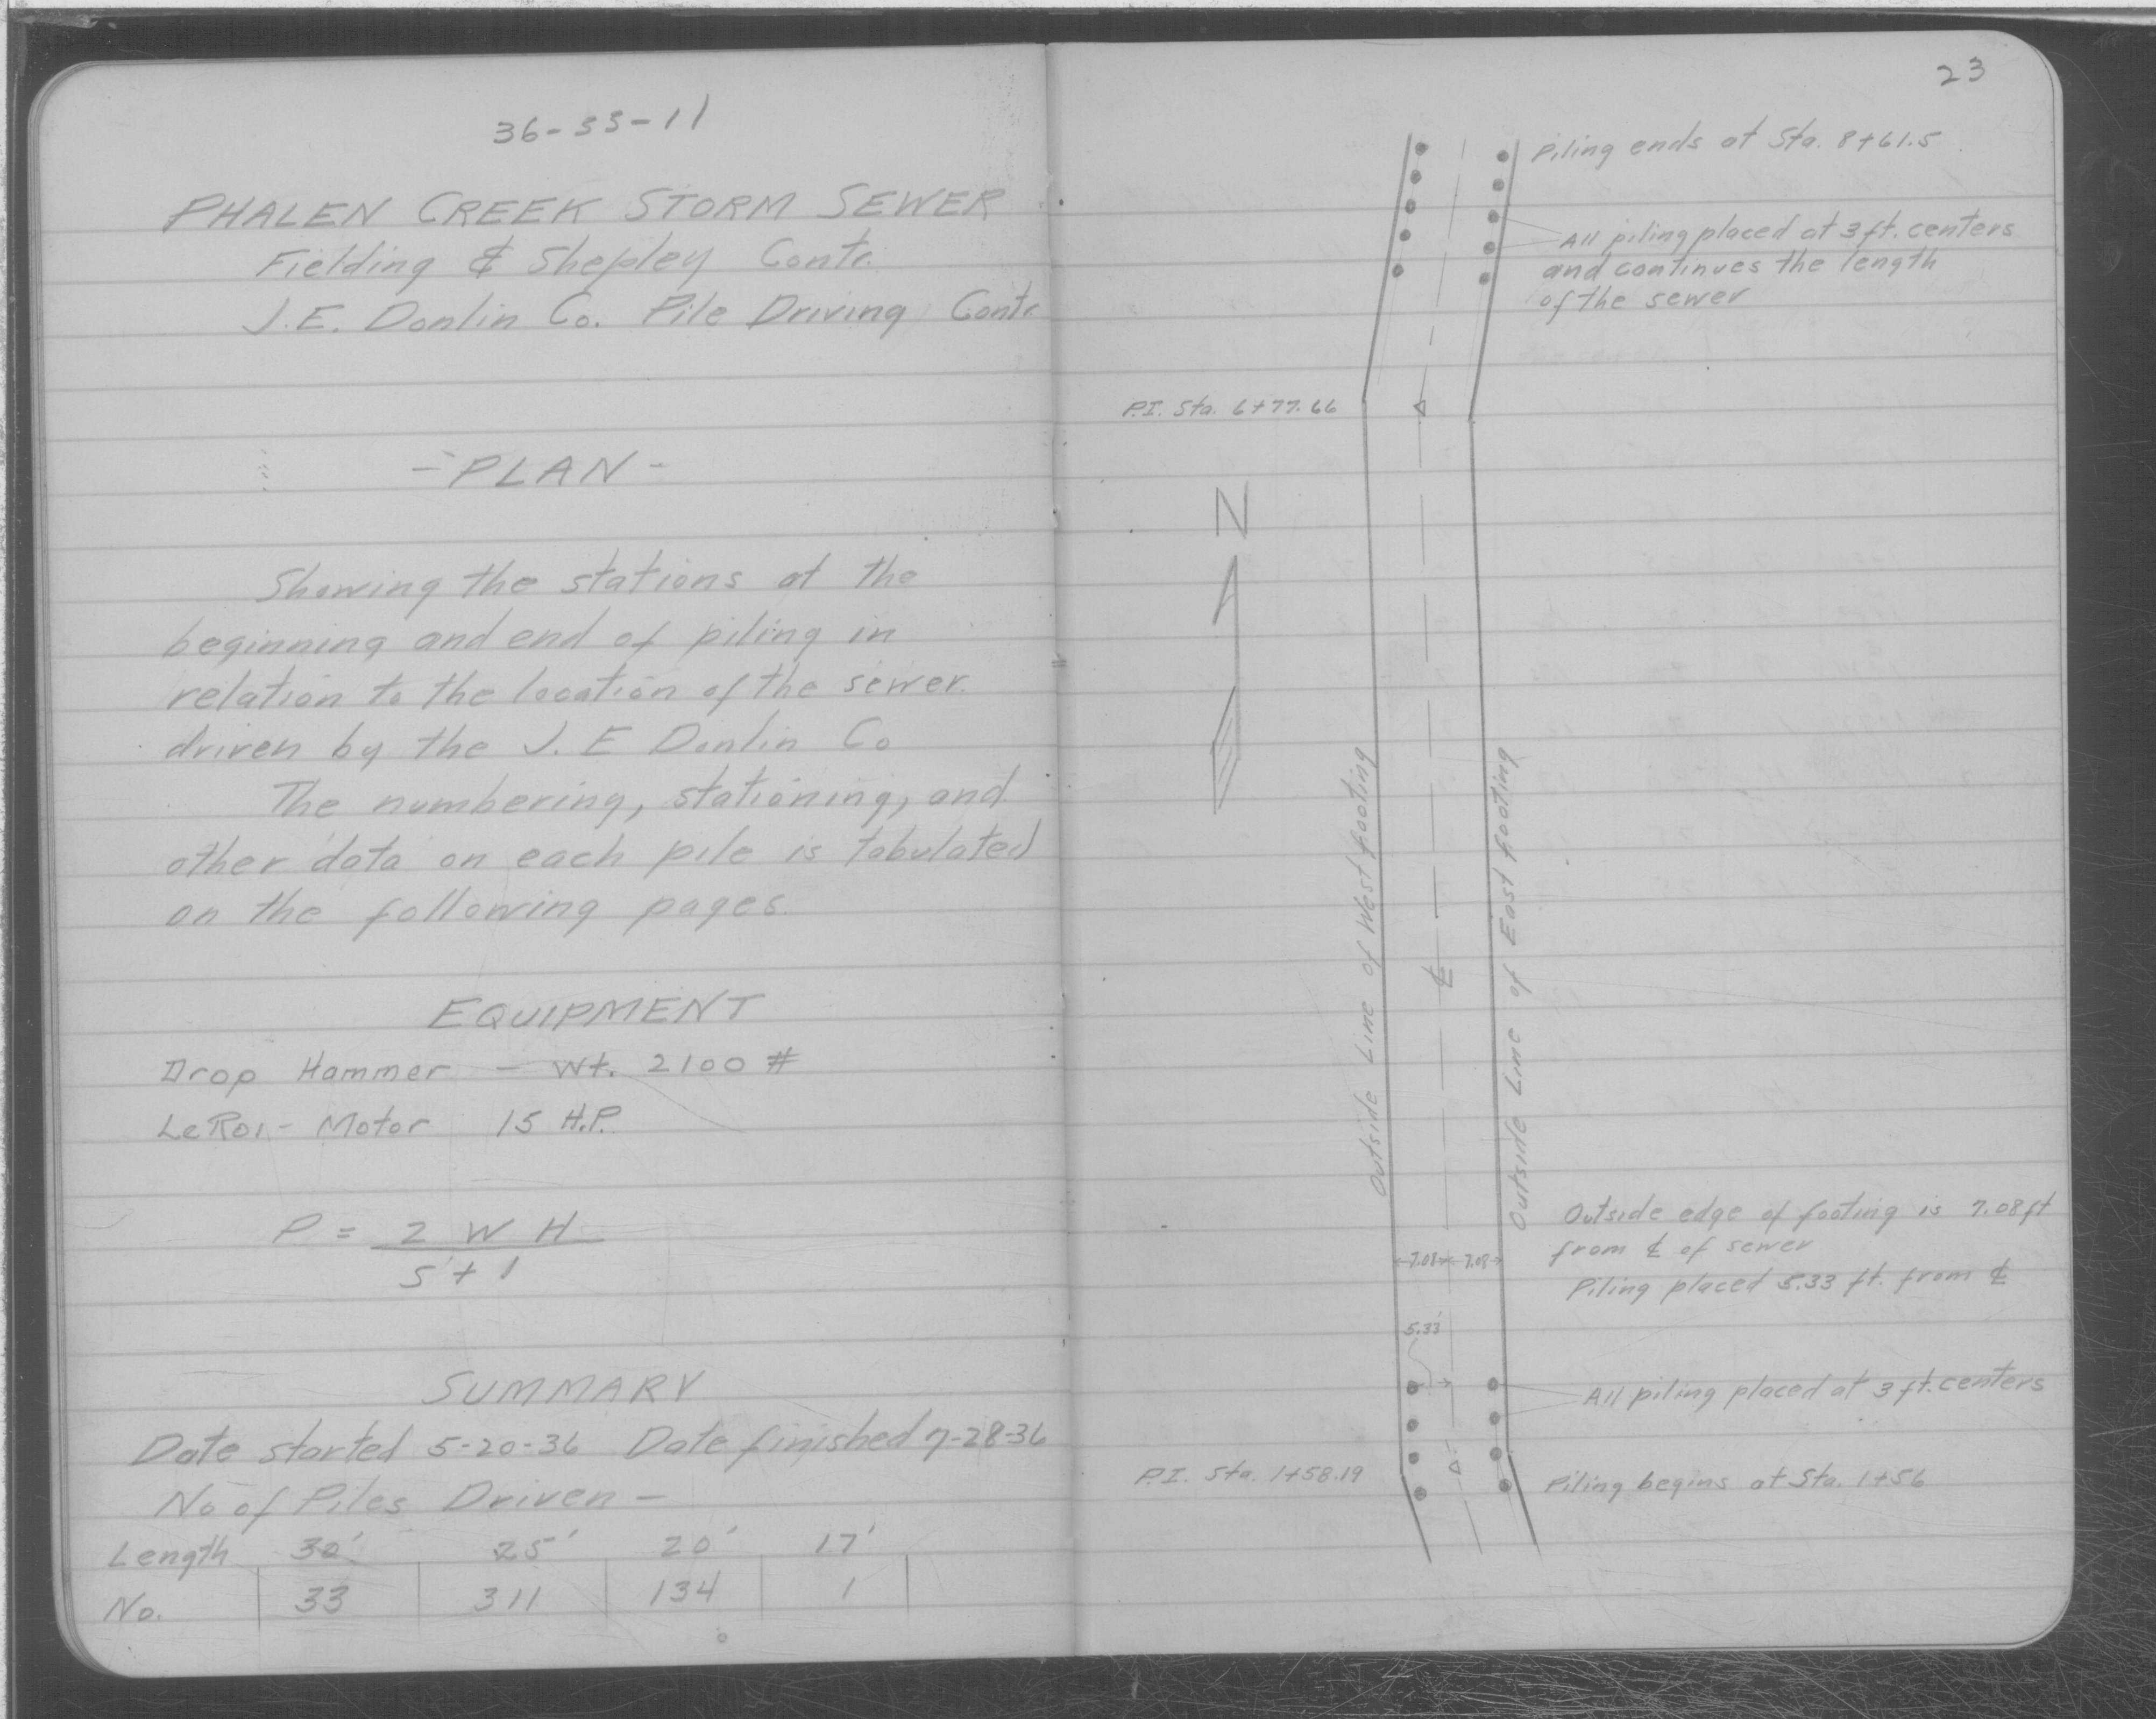 36-53-11
PHALEN CREEK STORM SEWER
Fielding & Shepley Contr.
J.E. Donlin Co. Pile Driving Contr.
-PLAN-
Showing the stations at the
beginning and end of piling in
relation to the location of the sewer.
driven by the J. E Donlin Co
The numbering, stationing, and
other data on each pile is tabulated
on the following pages.
EQUIPMENT
Drop Hammer - Wt. 2100 #
LeRoi- Motor 15 H.P.
P = 2 W H
S + 1
SUMMARY
Date started 5-20-36 Date finished 7-28-36
No of Piles Driven -
Length 30' 25' 20' 17'
No. 33 311 134 1
23
Piling ends at Sta. 8+61.5
All piling placed at 3 ft. centers
and continues the length
of the sewer
P.I. Sta. 6+77.66
N
Outside Line of West footing
℄
Outside Line of East footing
Outside edge of footing is 7.08 ft
from ℄ of sewer
7.08 7.08
Piling placed 5.33 ft. from ℄
5.33'
All piling placed at 3 ft. centers
P.I. Sta. 1+58.19
Piling begins at Sta. 1+56